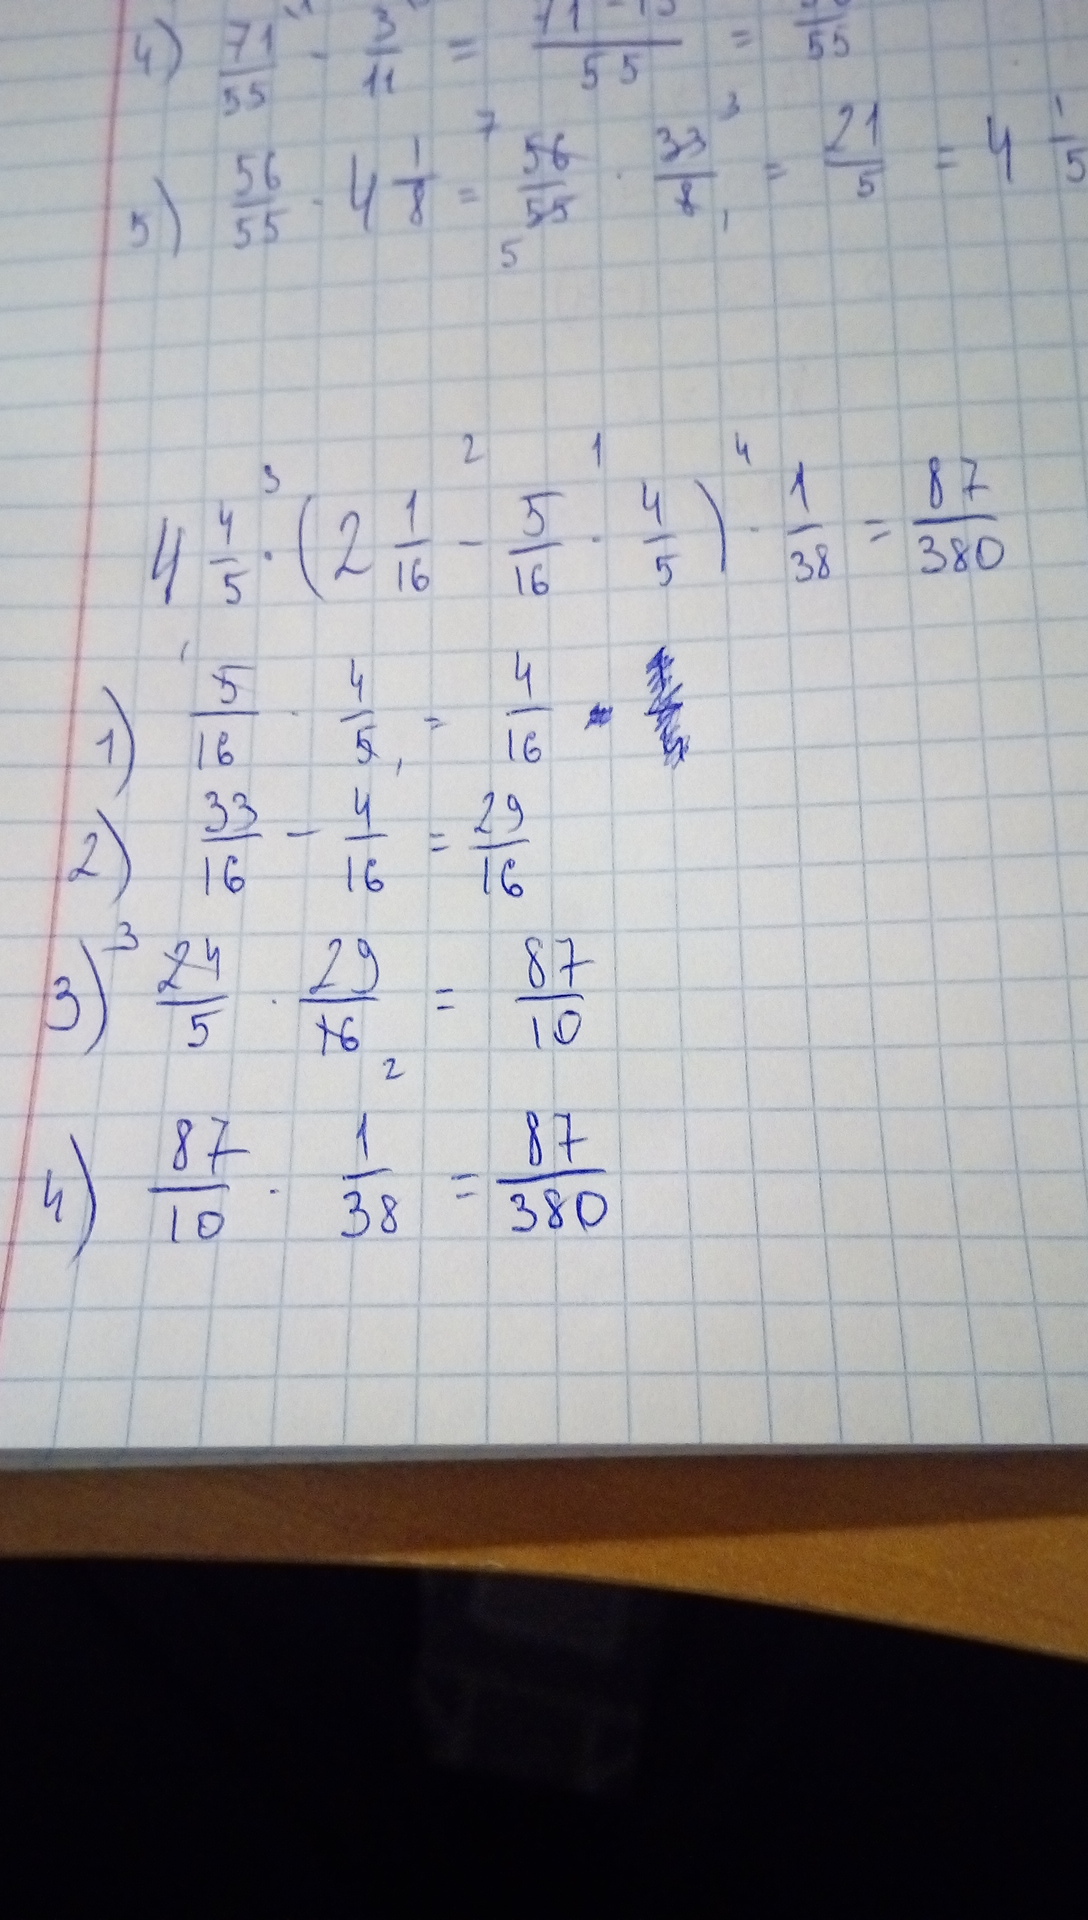 4) 71/55 - 3/11 = 71-15/55 = /55
5) 56/55 · 4 1/8 = 56/55 · 33/8 = 21/5 = 4 1/5
4 4/5 · (2 1/16 - 5/16 · 4/5) · 1/38 = 87/380
1) 5/16 · 4/5 = 4/16
2) 33/16 - 4/16 = 29/16
3) 24/5 · 29/16 = 87/10
4) 87/10 · 1/38 = 87/380